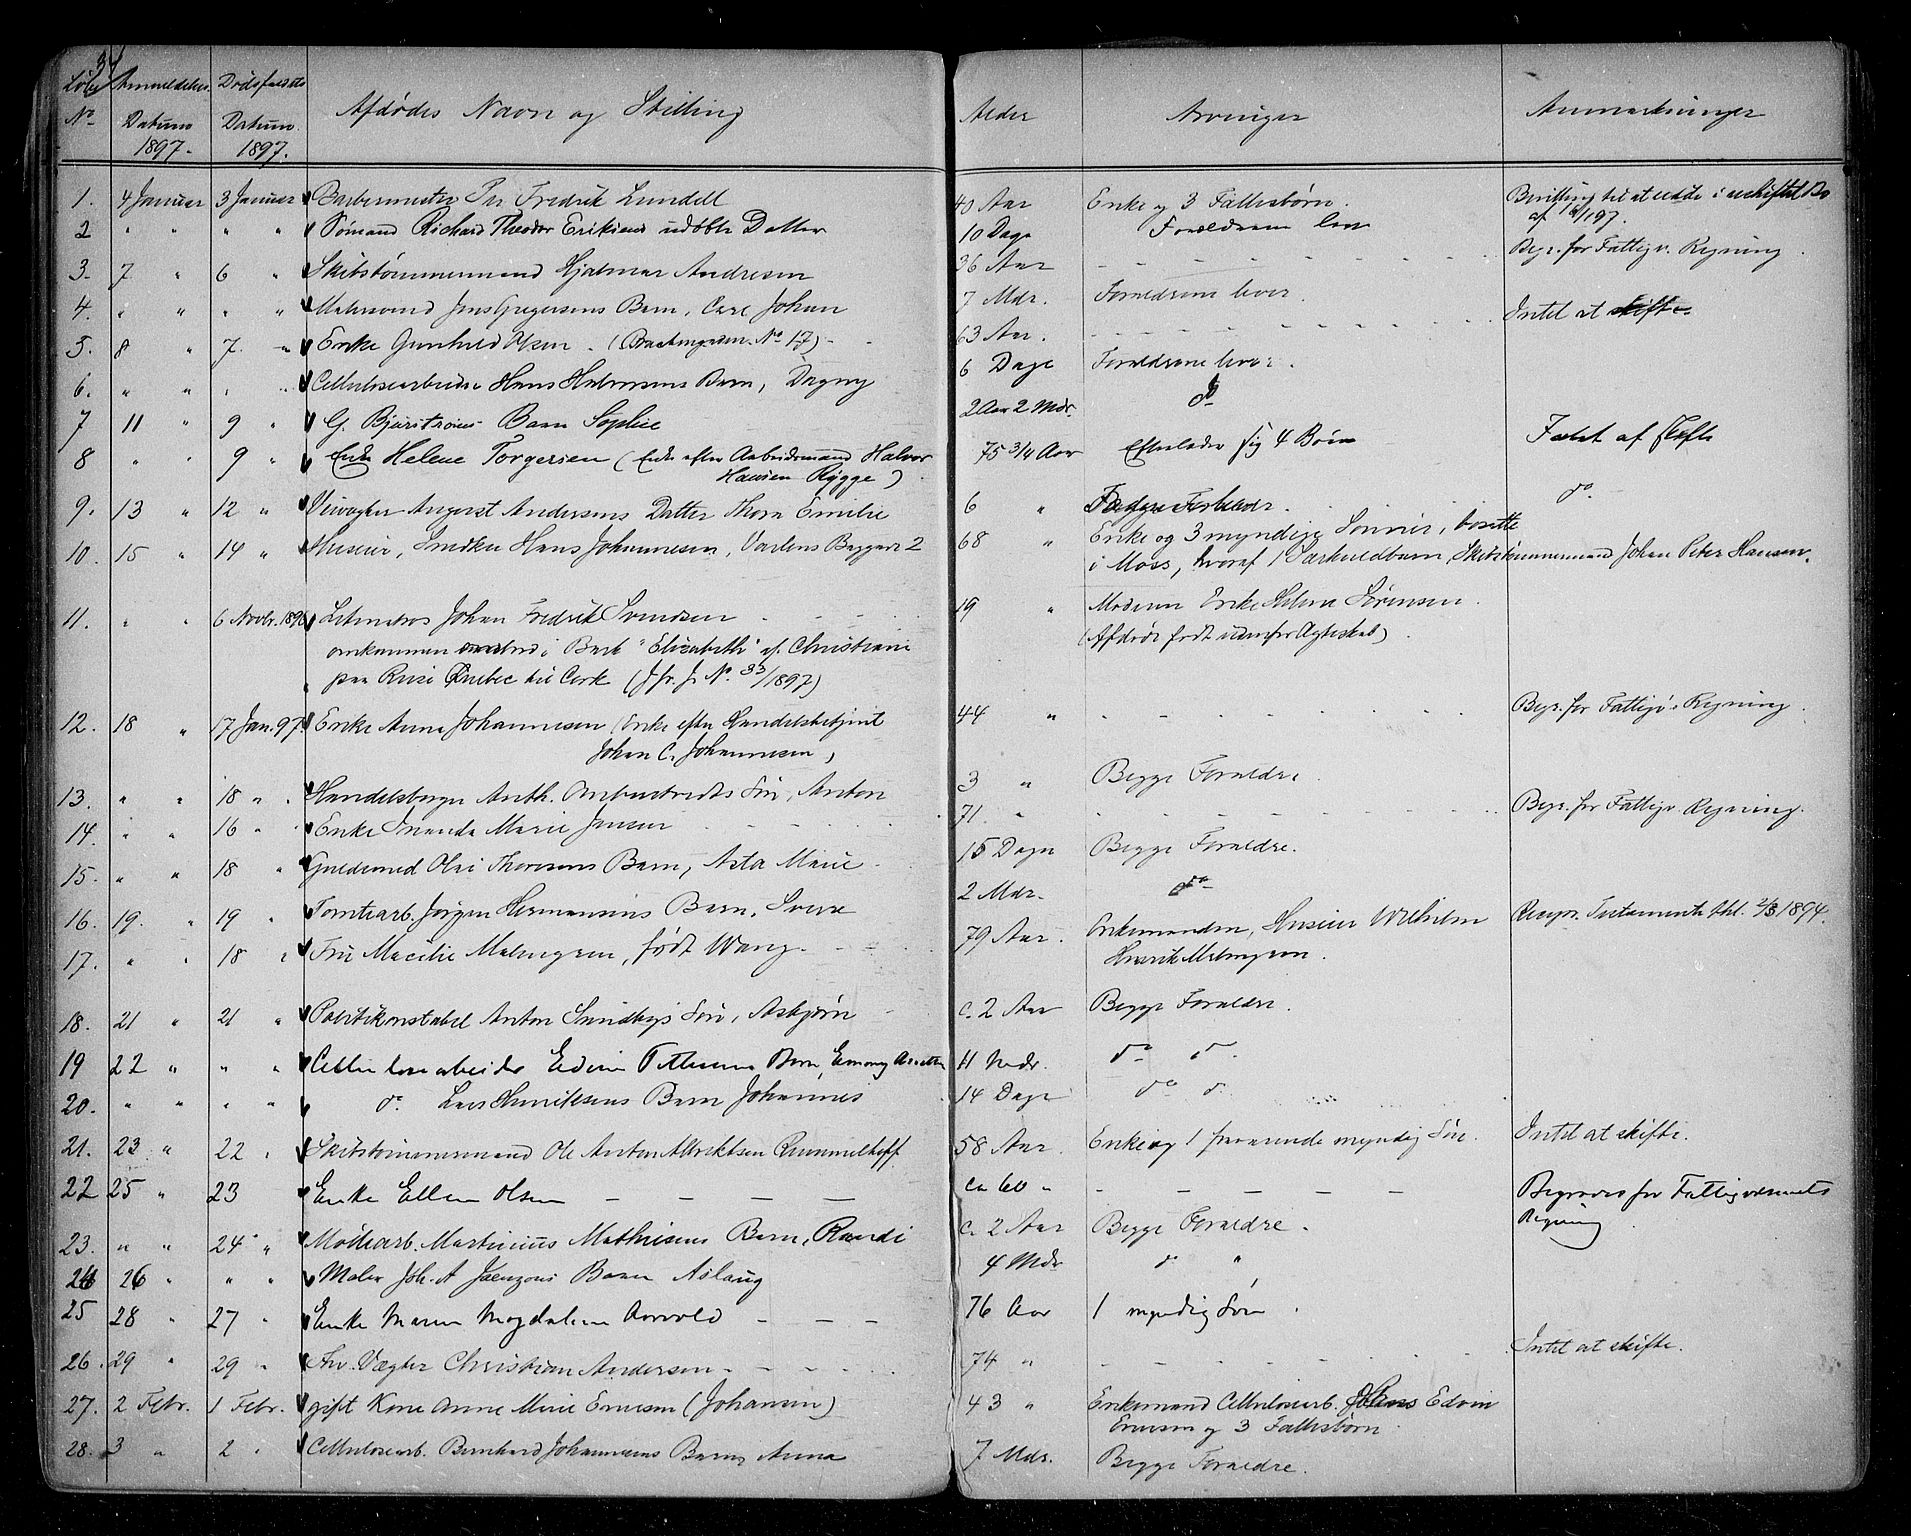 34
Løbe No Anmeldelses Datum 1897. Dødsfaldets Datum 1897. Afdødes Navn og Stilling Alder Arvinger Anmærkninger
1. 4 Januar 3 Januar Barbermester Per Fredrik Lundell 40 Aar Enke og 3 Fællesbørn. Bevilling til at sidde i uskiftet Bo
af 197.
2 " " " " Sømand Richard Theodor Eriksens udøbte Datter 10 Dage Forældrene lever
3. 7 " 6 " Skibstømmermand Hjalmar Andresen 36 Aar - - - Begr. for Fattigv. Regning
4. " " " " Malersvend Jens Gregersens Barn, Carl Johan 7 Mdr. Forældrene lever.
5. 8 " 7. " Enke Gunhild Olsen - ( No 17) - 63 Aar. - - - Intet at skifte
6. " " " " Cellulosearbeider Hans Halvorsens Barn, Dagny 6 Dage Forældrene lever.
7 11 " 9 " G. Bjurstrøms Barn Sophie 2 Aar 2 Mdr. do
8 " " 9 " Enke Helene Torgersen (Enke efter Arbeidsmand Halvor
Hansen Rygge) 75 3/4 Aar Efterlader sig 4 Børn Fatet af Skifte
9. 13 " 12 " Veivogter August Andersens Datter Thora Emilie 6 " Begge Forældre. do.
10. 15 " 14 " Huseier, Snedker Hans Johannesen, Varlens Baggade 2 68 " Enke og 3 myndige Sønner, bosatte
i Moss, hvoraf 1 Særkuldbarn, Skibstømmermand Johan Peter Hansen.
11. " " 6 Novbr. 1896 Letmatros Johan Fredrik Svendsen 19 " Moderen Enke Helene Sørensen.
omkommen ombord i Bark "Elizabeth" af Christiania (Afdøde født udenfor Ægteskab).
paa Reise Quebec til Cork (Jfr. J. No. 33/1897)
12. 18 " 17 Jan. 97 Enke Anna Johannesen (Enke efter Handelsbetjent
Johan C. Johannesen) 44 " - - - Begr. for Fattigv. Regning.
13. " " 18 " Handelsborger Anth. Søn, Anton 3 " Begge Forældre.
14. " " 16 " Enke Marie Jensen 71. " - - - Begr. for Fattigv. Regning.
15. " " 18 " Guldsmed Olai Thoresens Barn, Asta Marie 15 Dage Begge Forældre.
16. 19. " 19 " Tomtearb. Jørgen Hermansens Barn, Sverre 2 Mdr. do
17. " " 18 " Fru Malmgren, født Wang. 79 Aar. Enkemanden, Huseier Wilhelm
Henrik Malmgren. Recipr. Testamente thl. 2/3 1894.
18. 21 " 21 " Politikonstabel Anton Sundbys Søn, Asbjørn c. 2 Aar Begge Forældre.
19 22 " " " Cellulosearbeider Edvin Pettersens Barn, 11 Mdr. do do.
20. " " " " do. Lars Henriksens Barn Johannes 14 Dage do do.
21. 23 " 22 " Skibstømmermand Ole Anton Albriktsen Rummelhoff 58 Aar. Enke og 1 fraværende myndig Søn. Intet at skifte.
22 25 " 23 Enke Ellen Olsen - - - - ca 60 " - - - Begraves for Fattigvæsenets
Regning
23. " " 24 " Møllearb. Martinius Mathisens Barn, Randi c. 2 Aar Begge Forældre.
24 26 " " " Maler Joh. A Jaenzons Barn Aslaug 4 Mdr do "
25 28 " 27 " Enke Maren Magdalena Aarvold - - - 76 Aar 1 myndig Søn.
26. 29 " 29 " Fhv. Vægter Christian Andersen - - - 74 " - - - Intet at skifte.
27. 2 Febr. 1 Febr. gift Kone Anne Marie Ernesen (Johansen) 43 " Enkemand Cellulosearb. Edvin
Ernesen og 3 Fællesbørn.
28. 3 " 2 " Cellulosearb. Bernhard Johannesens Barn, Anna 7 Mdr. Begge Forældre.